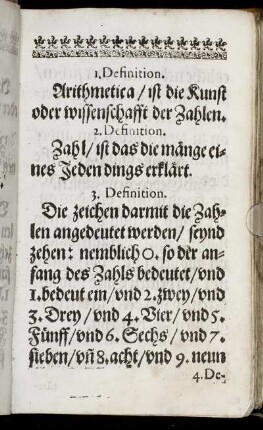 1. Definition.
Arithmetica / ist die Kunst
oder wissenschafft der Zahlen.
2. Definition.
Zahl / ist das die mänge ei-
nes Jeden dings erklärt.
3. Definition.
Die zeichen darmit die Zah-
len angedeutet werden / seynd
zehen: nemblich 0. so der an-
fang des Zahls bedeutet / vnd
1. bedeut ein / vnd 2. zwey / vnd
3. Drey / vnd 4. Vier / vnd 5.
Fünff / vnd 6. Sechs / vnd 7.
sieben / vñ 8. acht / vnd 9. neun
4. De-